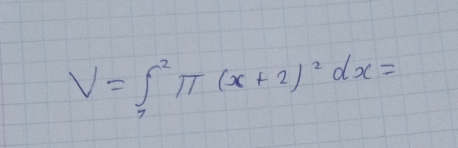 V = ∫₁² π (x + 2)² dx =